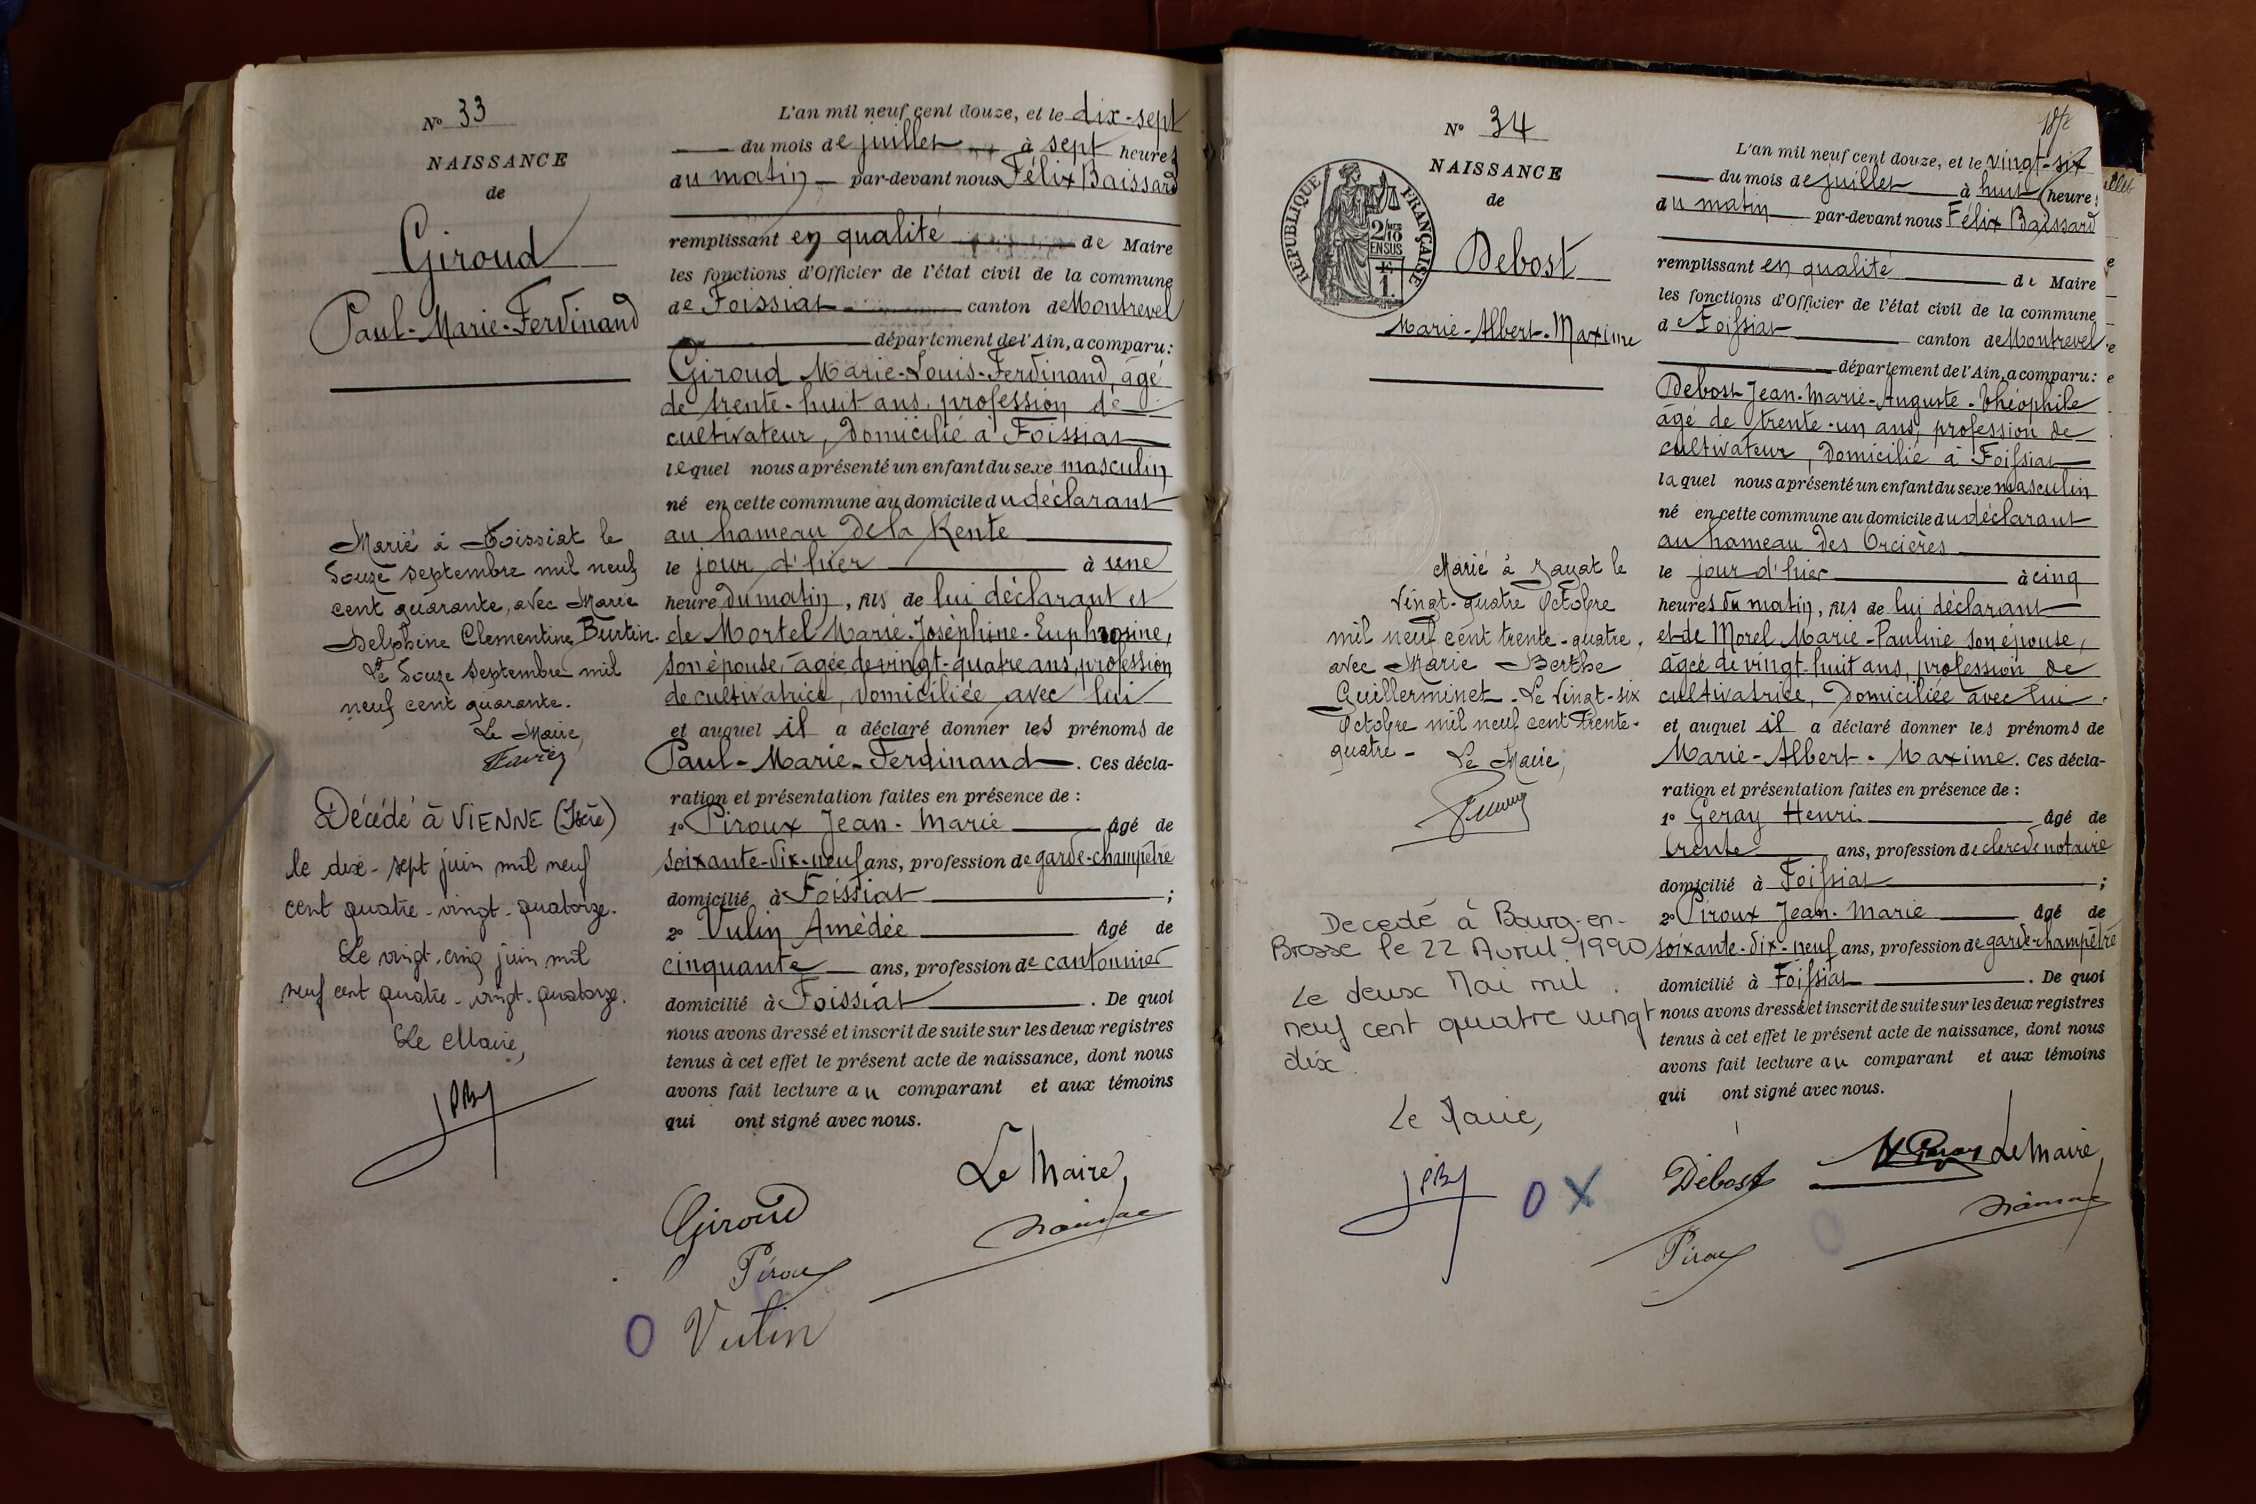 N° 33
NAISSANCE
de
Giroud
Paul-Marie-Ferdinand
Marié à Foissiat le
douze septembre mil neuf
cent quarante, avec Marie
Delphine Clementine Burtin.
Le douze septembre mil
neuf cent quarante.
Le Maire,
Décédé à VIENNE (Isère)
le dix-sept juin mil neuf
cent quatre-vingt-quatorze.
Le vingt-cinq juin mil
neuf cent quatre-vingt-quatorze.
Le Maire,
L'an mil neuf cent douze, et le dix-sept
du mois de juillet à sept heures
du matin par-devant nous Félix Baissard
remplissant en qualité de Maire
les fonctions d'Officier de l'état civil de la commune
de Foissiat canton de Montrevel
département de l'Ain, a comparu :
Giroud Marie-Louis-Ferdinand, âgé
de trente-huit ans, profession de
cultivateur, domicilié à Foissiat
lequel nous a présenté un enfant du sexe masculin
né en cette commune au domicile du déclarant
au hameau de la Kente
le jour d'hier à une
heure du matin, fils de lui déclarant et
de Mortel Marie-Joséphine-Euphrosine,
son épouse, âgée de vingt-quatre ans, profession
de cultivatrice, domiciliée avec lui
et auquel il a déclaré donner les prénoms de
Paul-Marie-Ferdinand. Ces décla-
ration et présentation faites en présence de :
1° Piroux Jean-Marie âgé de
soixante-dix-neuf ans, profession de garde-champêtre
domicilié à Foissiat ;
2° Vulin Amédée âgé de
cinquante ans, profession de cantonnier
domicilié à Foissiat. De quoi
nous avons dressé et inscrit de suite sur les deux registres
tenus à cet effet le présent acte de naissance, dont nous
avons fait lecture au comparant et aux témoins
qui ont signé avec nous.
Le Maire,
Giroud
Piroux
Vulin
N° 34
NAISSANCE
de
RÉPUBLIQUE FRANÇAISE
2/10 EN SUS
1 F
Debost
Marie-Albert-Maxime
Marié à Jayat le
vingt-quatre Octobre
mil neuf cent trente-quatre,
avec Marie Berthe
Guillerminet. Le vingt-six
Octobre mil neuf cent trente-
quatre -
Le Maire,
Decedé à Bourg-en-
Bresse le 22 Avril 1990
Le deux Mai mil
neuf cent quatre vingt
dix.
Le Maire,
L'an mil neuf cent douze, et le vingt-six
du mois de juillet à huit heures
du matin par-devant nous Félix Baissard
remplissant en qualité de Maire
les fonctions d'Officier de l'état civil de la commune
de Foissiat canton de Montrevel
département de l'Ain, a comparu :
Debost Jean-Marie-Auguste-Théophile
âgé de trente-un ans, profession de
cultivateur, domicilié à Foissiat
laquel nous a présenté un enfant du sexe masculin
né en cette commune au domicile du déclarant
au hameau des Orcières
le jour d'hier à cinq
heures du matin, fils de lui déclarant
et de Morel Marie-Pauline son épouse,
âgée de vingt-huit ans, profession de
cultivatrice, domiciliée avec lui
et auquel il a déclaré donner les prénoms de
Marie-Albert-Maxime. Ces décla-
ration et présentation faites en présence de :
1° Geray Henri âgé de
trente ans, profession de clerc de notaire
domicilié à Foissiat ;
2° Piroux Jean-Marie âgé de
soixante-dix-neuf ans, profession de garde-champêtre
domicilié à Foissiat. De quoi
nous avons dressé et inscrit de suite sur les deux registres
tenus à cet effet le présent acte de naissance, dont nous
avons fait lecture au comparant et aux témoins
qui ont signé avec nous.
Debost
Le Maire,
Piroux